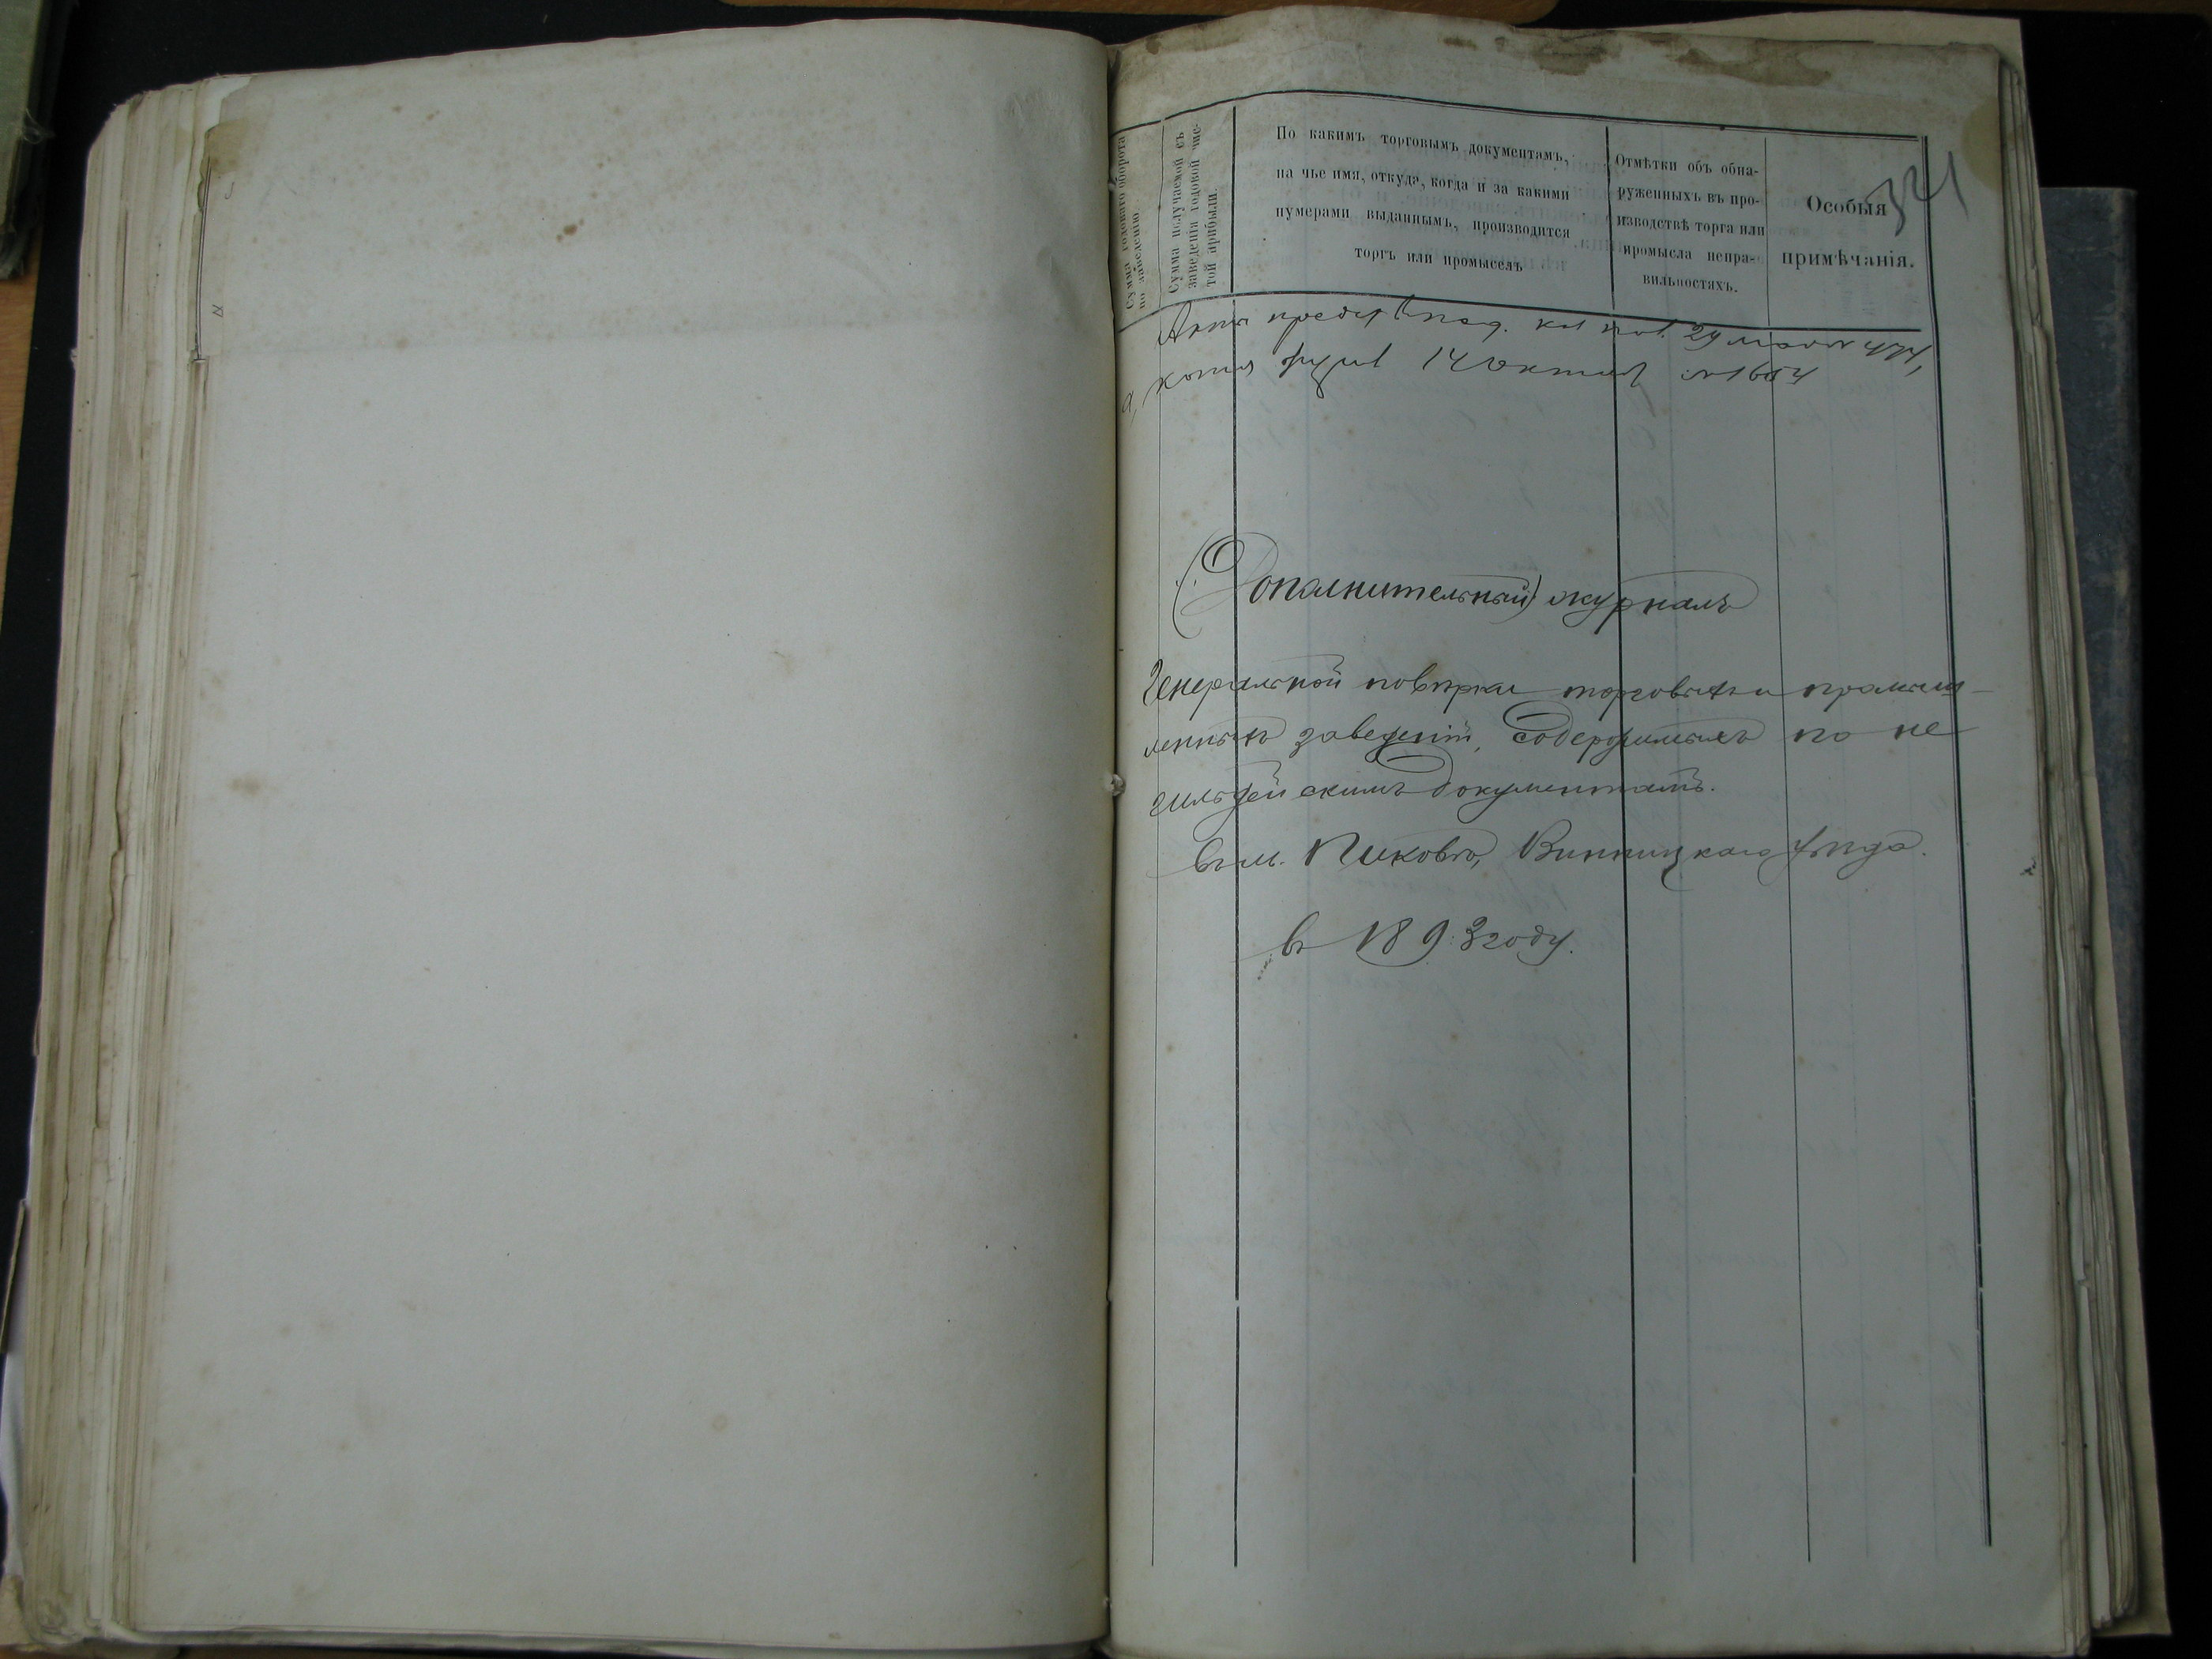 Сумма годоваго оборота
по заведенію
Сумма получаемой съ
заведенія годовой чис-
той прибыли.
По какимъ торговымъ документамъ,
на чье имя, откуда, когда и за какими
нумерами выданнымъ, производится
торгъ или промыселъ
Отмѣтки объ обна-
руженныхъ въ про-
изводствѣ торга или
промысла непра-
вильностяхъ.
Особыя
примѣчанія.
321
29
копія 14 Октяб
(Дополнительный) журналъ
Генеральной повѣрки торговыхъ и промыш-
ленныхъ заведеній, содержимыхъ по не
гильдейскимъ документамъ.
Въ м. Пиковѣ, Винницкаго уѣзда.
въ 1893 году.